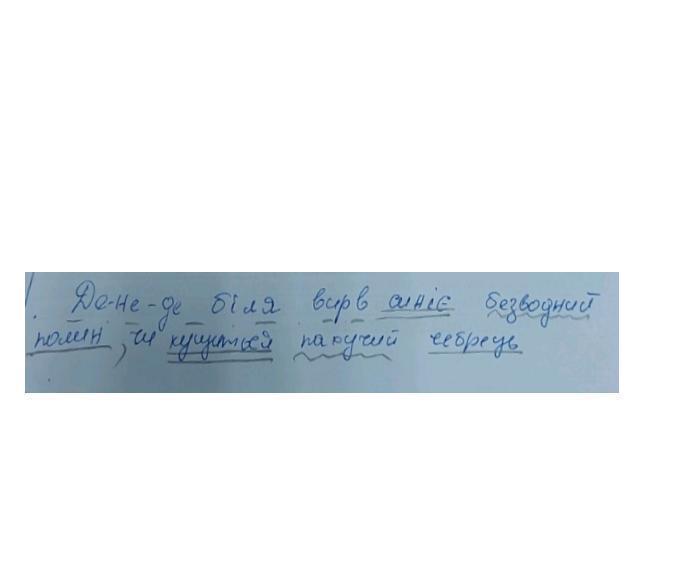 Де-не-де біля вирв синіє безводний
полин, чи кущиться пахучий чебрець